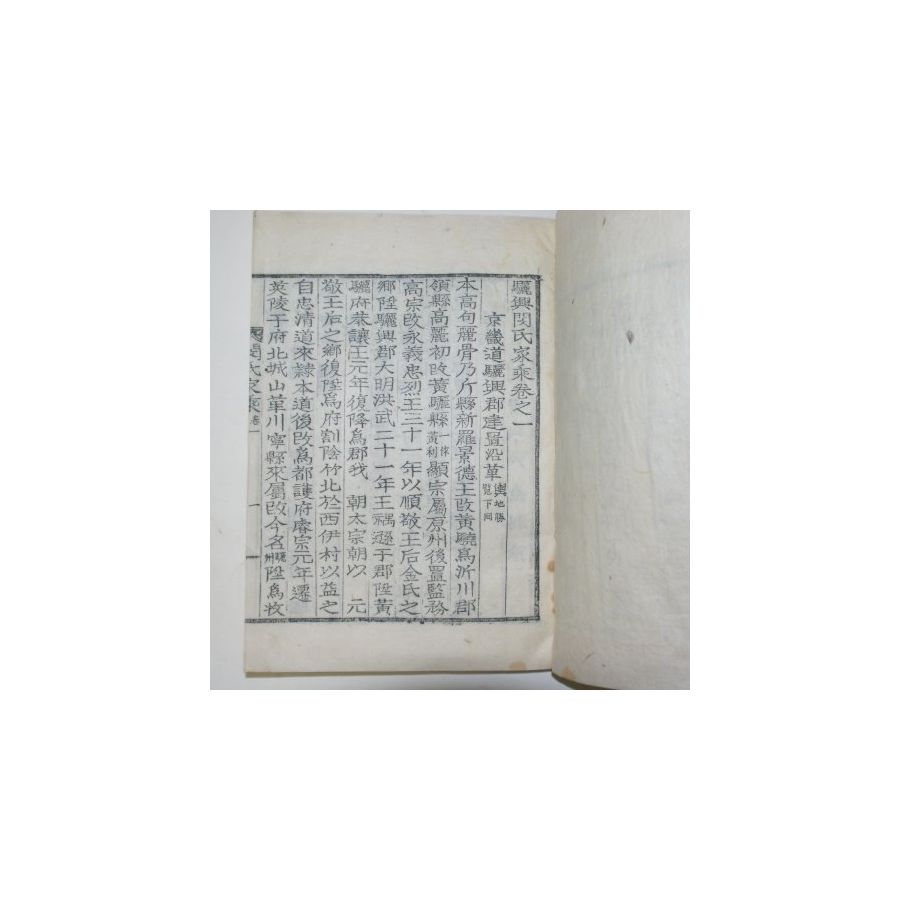 驪興閔氏家乘卷之一
京畿道驪興郡建置沿革 輿地勝覽下同
本高句麗骨乃斤縣新羅景德王改黃驍爲沂川郡
領縣高麗初改黃驪縣一作黃利顯宗屬原州後置監務
高宗改永義忠烈王三十一年以順敬王后金氏之
鄉陞驪興郡大明洪武二十一年王禑遜于郡陞黃
驪府恭讓王元年復降爲郡我 朝太宗朝以 元
敬王后之鄉復陞爲府割陰竹北於西伊村以益之
自忠清道來隸本道後改爲都護府睿宗元年遷
英陵于府北城山革川寧縣來屬改今名驪州陞爲牧
閔氏家乘 卷一 一